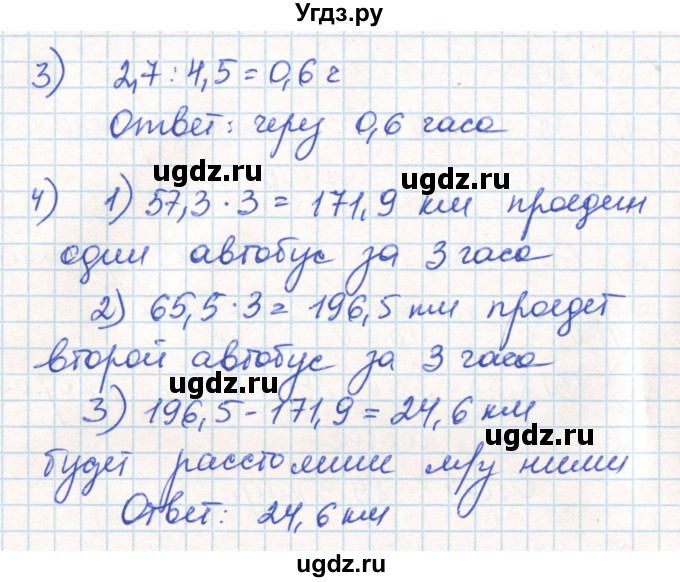 Угдз.ру
3) 2,7 : 4,5 = 0,6 ч
Ответ: через 0,6 часа
ugdz.ru ugdz.ru
4) 1) 57,3 · 3 = 171,9 км проедет
один автобус за 3 часа
2) 65,5 · 3 = 196,5 км проедет
второй автобус за 3 часа
ugdz.ru
3) 196,5 - 171,9 = 24,6 км
ugdz.ru
будет расстояние м/у ними
Ответ: 24,6 км
ugdz.ru
ugdz.ru